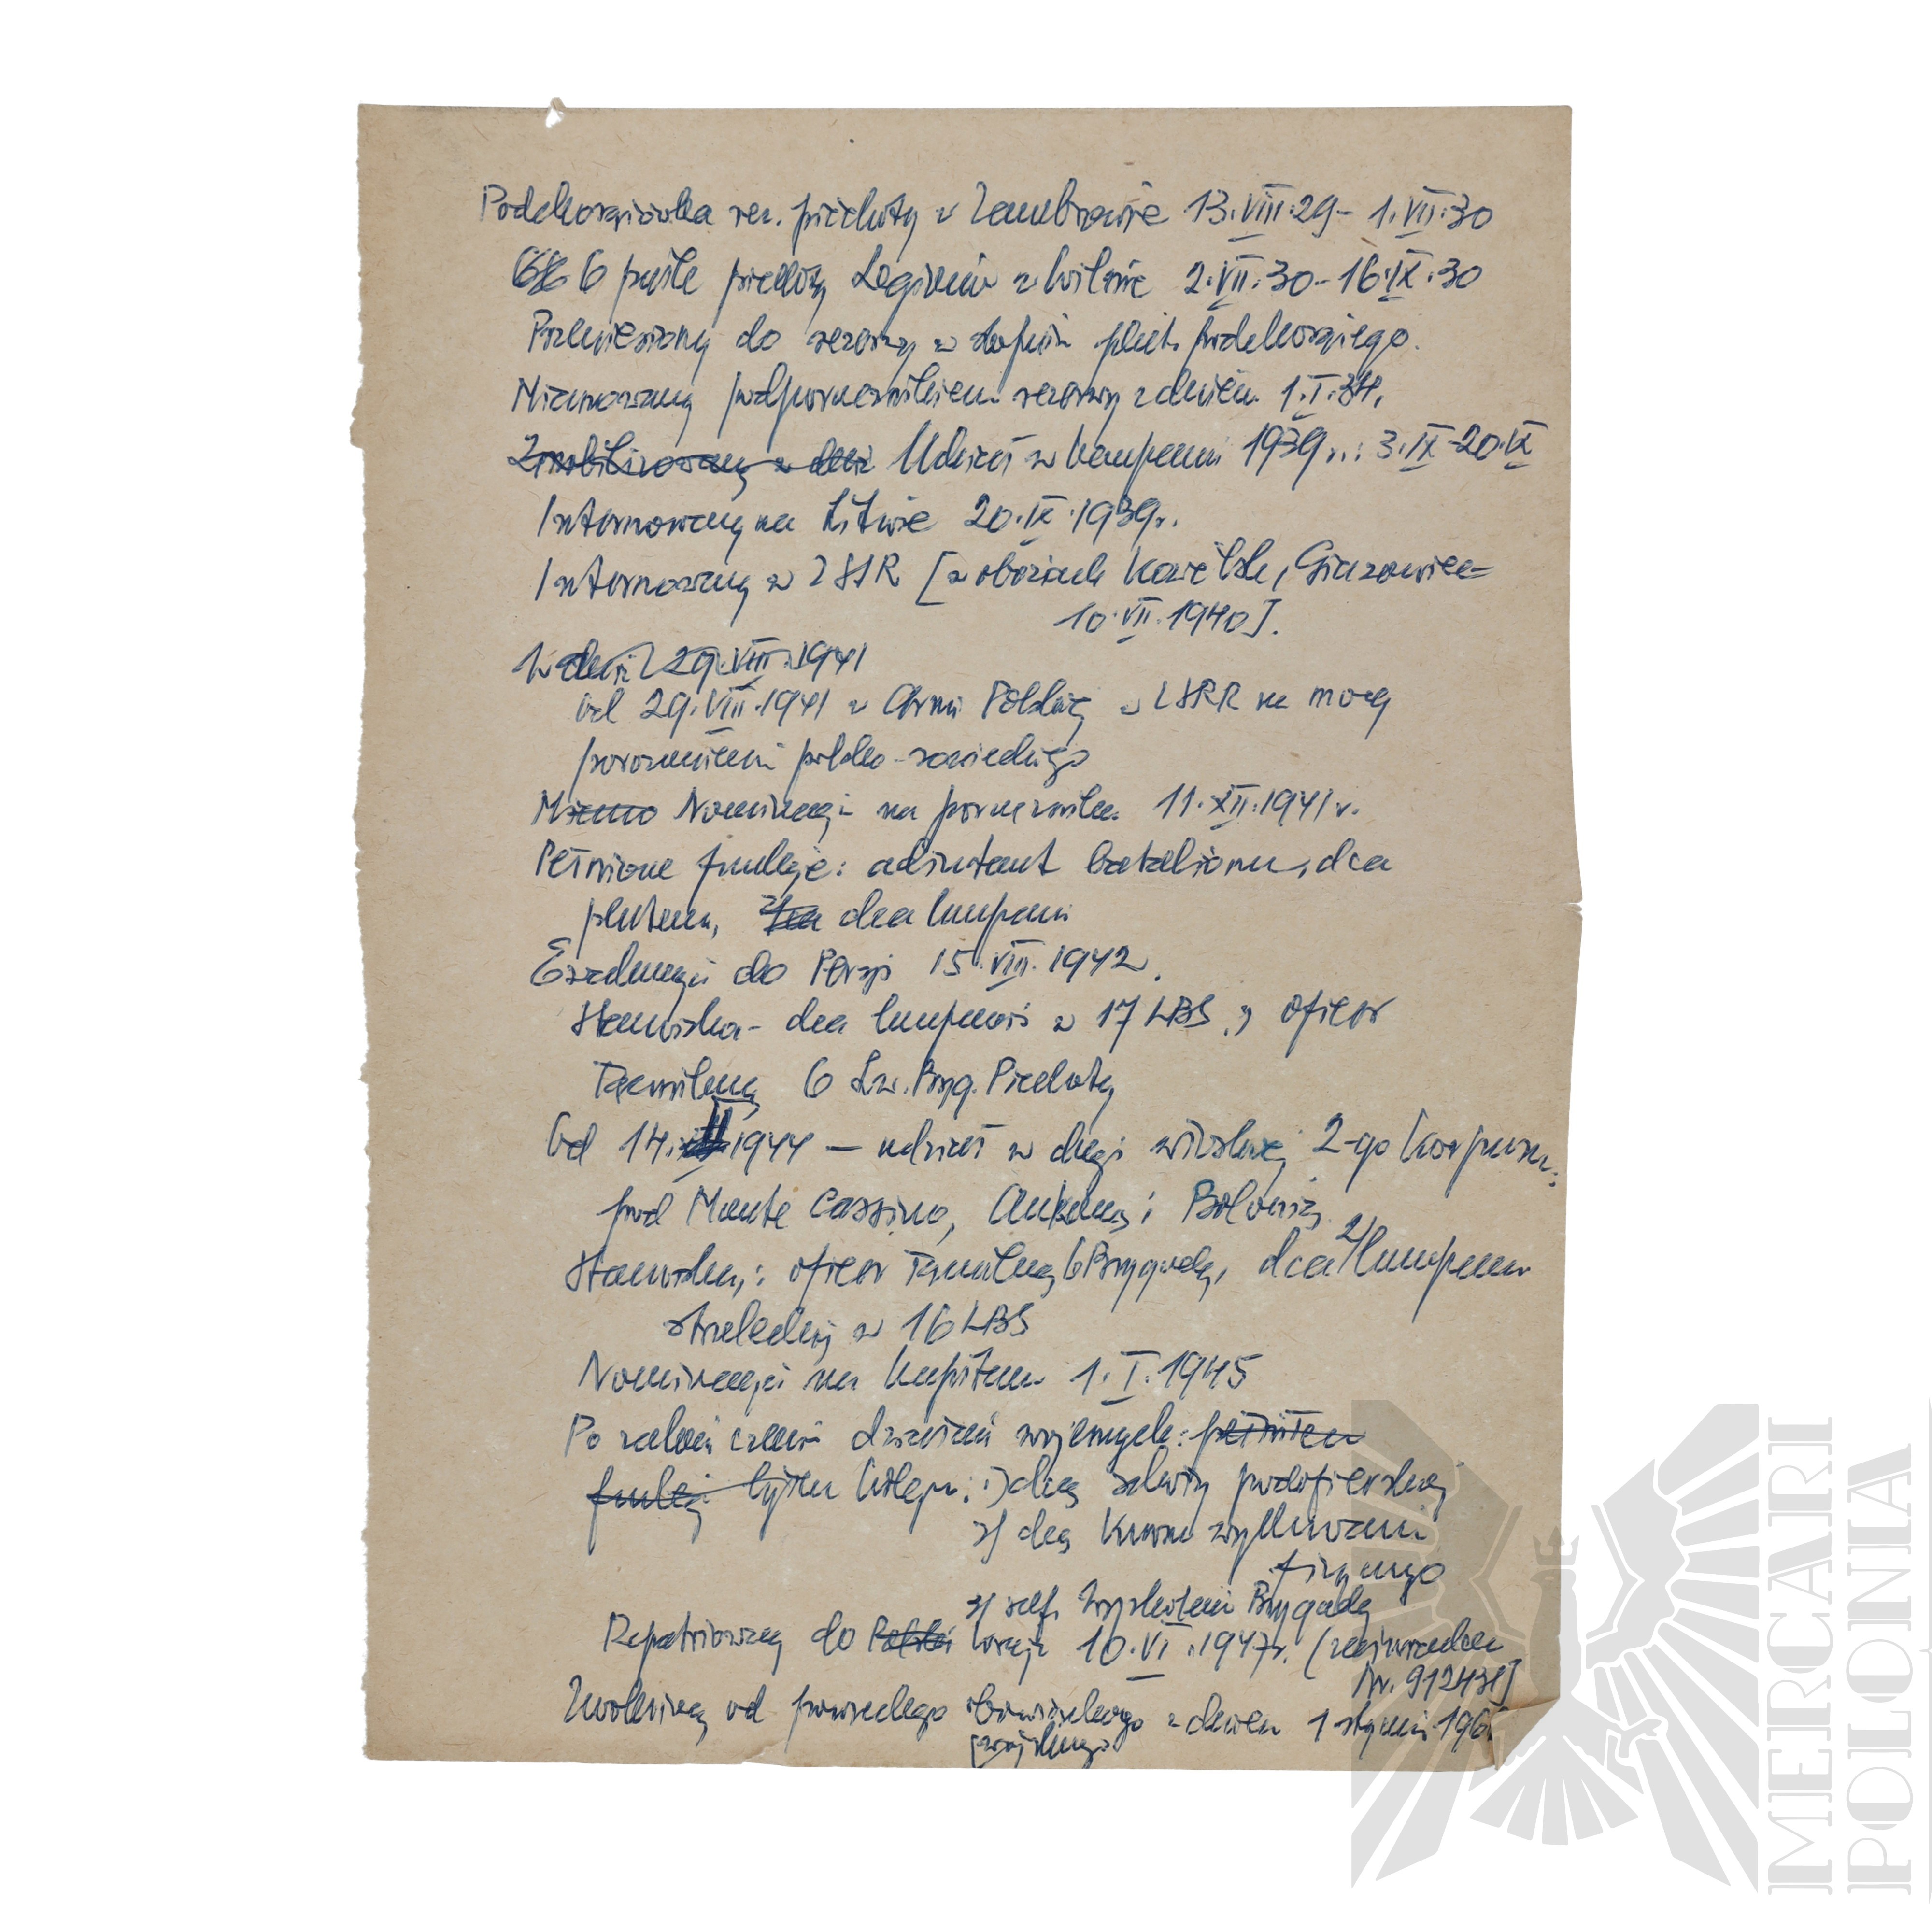 Podchorążówka rez. piechoty w Zambrowie 13.VIII.29 - 1.VII.30
6 pułk piechoty Legionów w Wilnie 2.VII.30 - 16.IX.30
Przeniesiony do rezerwy w stopniu plut. podchorążego.
Mianowany podporucznikiem rezerwy z dniem 1.I.34.
Zmobilizowany w dniu Udział w kampanii 1939r.: 3.IX-20.IX
Internowany na Litwie 20.IX.1939r.
Internowany w ZSSR [w obozach Kozielsk, Griazowiec -
10.VII.1940].
W dniu 29.VIII.1941
od 29.VIII.1941 w Armii Polskiej w ZSRR na mocy
porozumienia polsko-sowieckiego
Miano Nominacja na porucznika 11.XII.1941r.
Pełnione funkcje: adiutant batalionu, dca
plutonu, dca kompanii
Ewakuacja do Persji 15.VIII.1942.
Stanowiska - dca kompanii w 17 LBS, oficer
Łącznikowy 6 Lw. Bryg. Piechoty
Od 14.II.1944 — udział w akcji włoskiej 2-go Korpusu:
pod Monte Cassino, Ankoną i Bolonią
Stanowisko: oficer łącznikowy 6 Brygady, dca 2/ kompanii
strzeleckiej w 16 LBS
Nominacja na kapitana 1.I.1945
Po zakończeniu działań wojennych: pełniłem
funkcję byłem kolejno: 1) dcą szkoły podoficerskiej
2) dcą Kursu wychowania
fizycznego
3) szef. Wyszkolenia Brygady
Repatriowany do Polski kraju 10.VI.1947r. (zaświadczenie
Nr. 912434]
Zwolniony od powszechnego obowiązku z dniem 1 stycznia 196
wojskowego
MERCARI
POLONIA